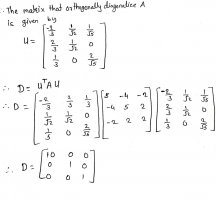 ∴ The matrix that orthogonally diagonalize A
is given by
U = [ -2/3 1/√2 1/√5
2/3 1/√2 0
1/3 0 2/√5 ]
∴ D = UᵀAU
∴ D = [ -2/3 2/3 1/3
1/√2 1/√2 0
1/√5 0 2/√5 ] [ 5 -4 -2
-4 5 2
-2 2 2 ] [ -2/3 1/√2 1/√5
2/3 1/√2 0
1/3 0 2/√5 ]
∴ D = [ 10 0 0
0 1 0
0 0 1 ]